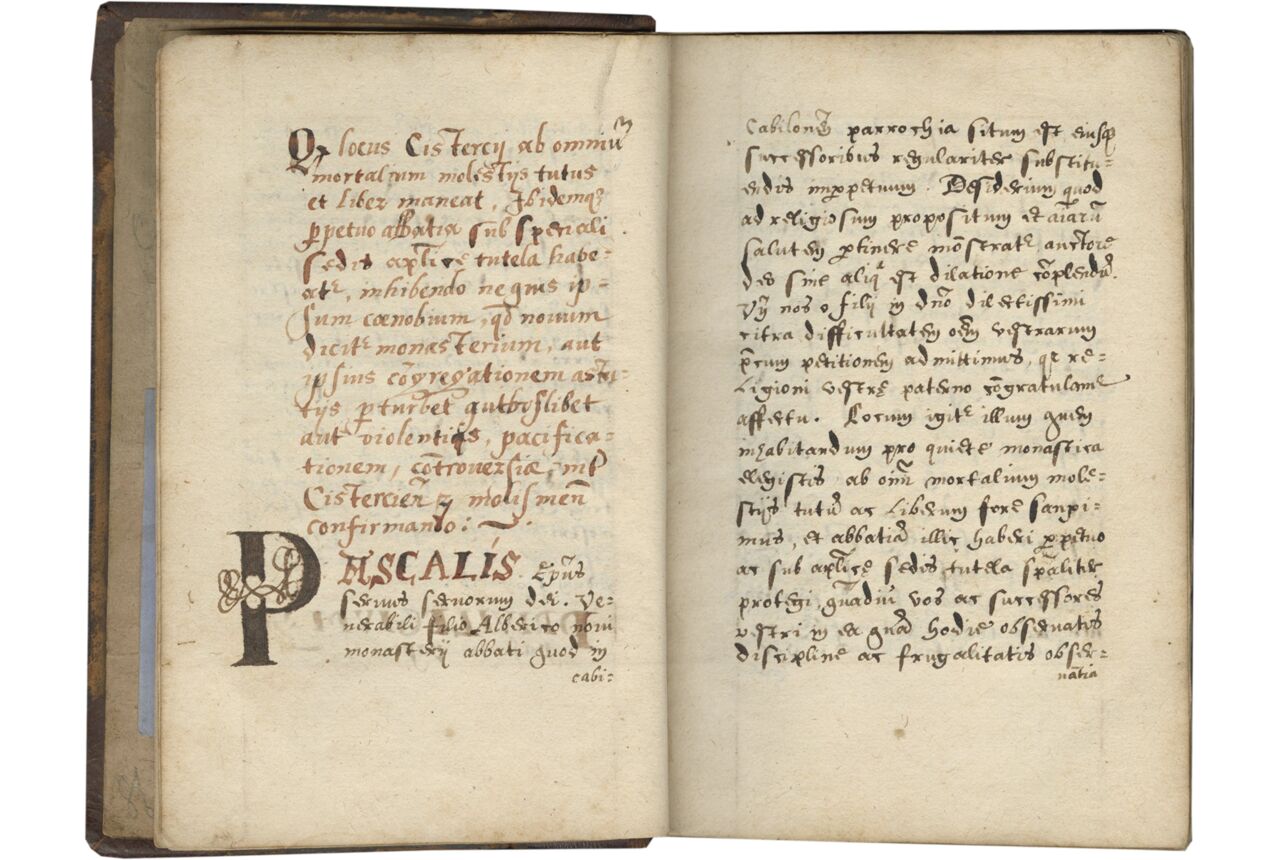 Qꝙ locus Cistercij ab omniũ
mortalium molestijs tutus
et liber maneat, Ibidemqꝫ
ꝑpetuo abbatia sub speciali
sedis aplice tutela habe-
atᷣ, inhibendo ne quis ip-
sum cœnobium, qd nouum
dicitᷣ monasterium, aut
ipsius cõgregationem astu-
tijs ꝑturbet quibuslibet
aut violentijs, pacifica-
tionem, cõtrouersiæ, int̃
Cistercieñ ⁊ molismeñ
confirmando:
PASCALIS. Ep̃us
seruus seruorum dei. Ve-
nerabili filio Alberico noui
monasterij abbati quod in
cabi-
Cabiloneñ parrochia situm est eiusqꝫ
successoribus regulariter substitu-
endis imꝑpetuum. Desiderium quod
ad religiosum propositum et aĩarũ
salutem ꝑtinere monstratᷣ auctore
deo sine aliq̃ est dilatione cõplendũ.
Vñ nos o filij in dño dilectissimi
citra difficultatem oẽm vestrarum
p̃cum petitionem admittimus, qꝛ re-
Ligioni vestrę paterno cõgratulamᷣ
affectu. Locum igitᷣ illum quem
inhabitandum pro quiete monastica
elegistis ab oĩm mortalium mole-
stijs tutũ ac Liberum fore sanxi-
mus, et abbatiã illic haberi ꝑpetuo
ac sub aplice sedis tutela sp̃aliter
protegi, quãdiu vos ac successores
vestri in ea quã hodie obseruatis
discipline ac frugalitatis obser-
uãtia